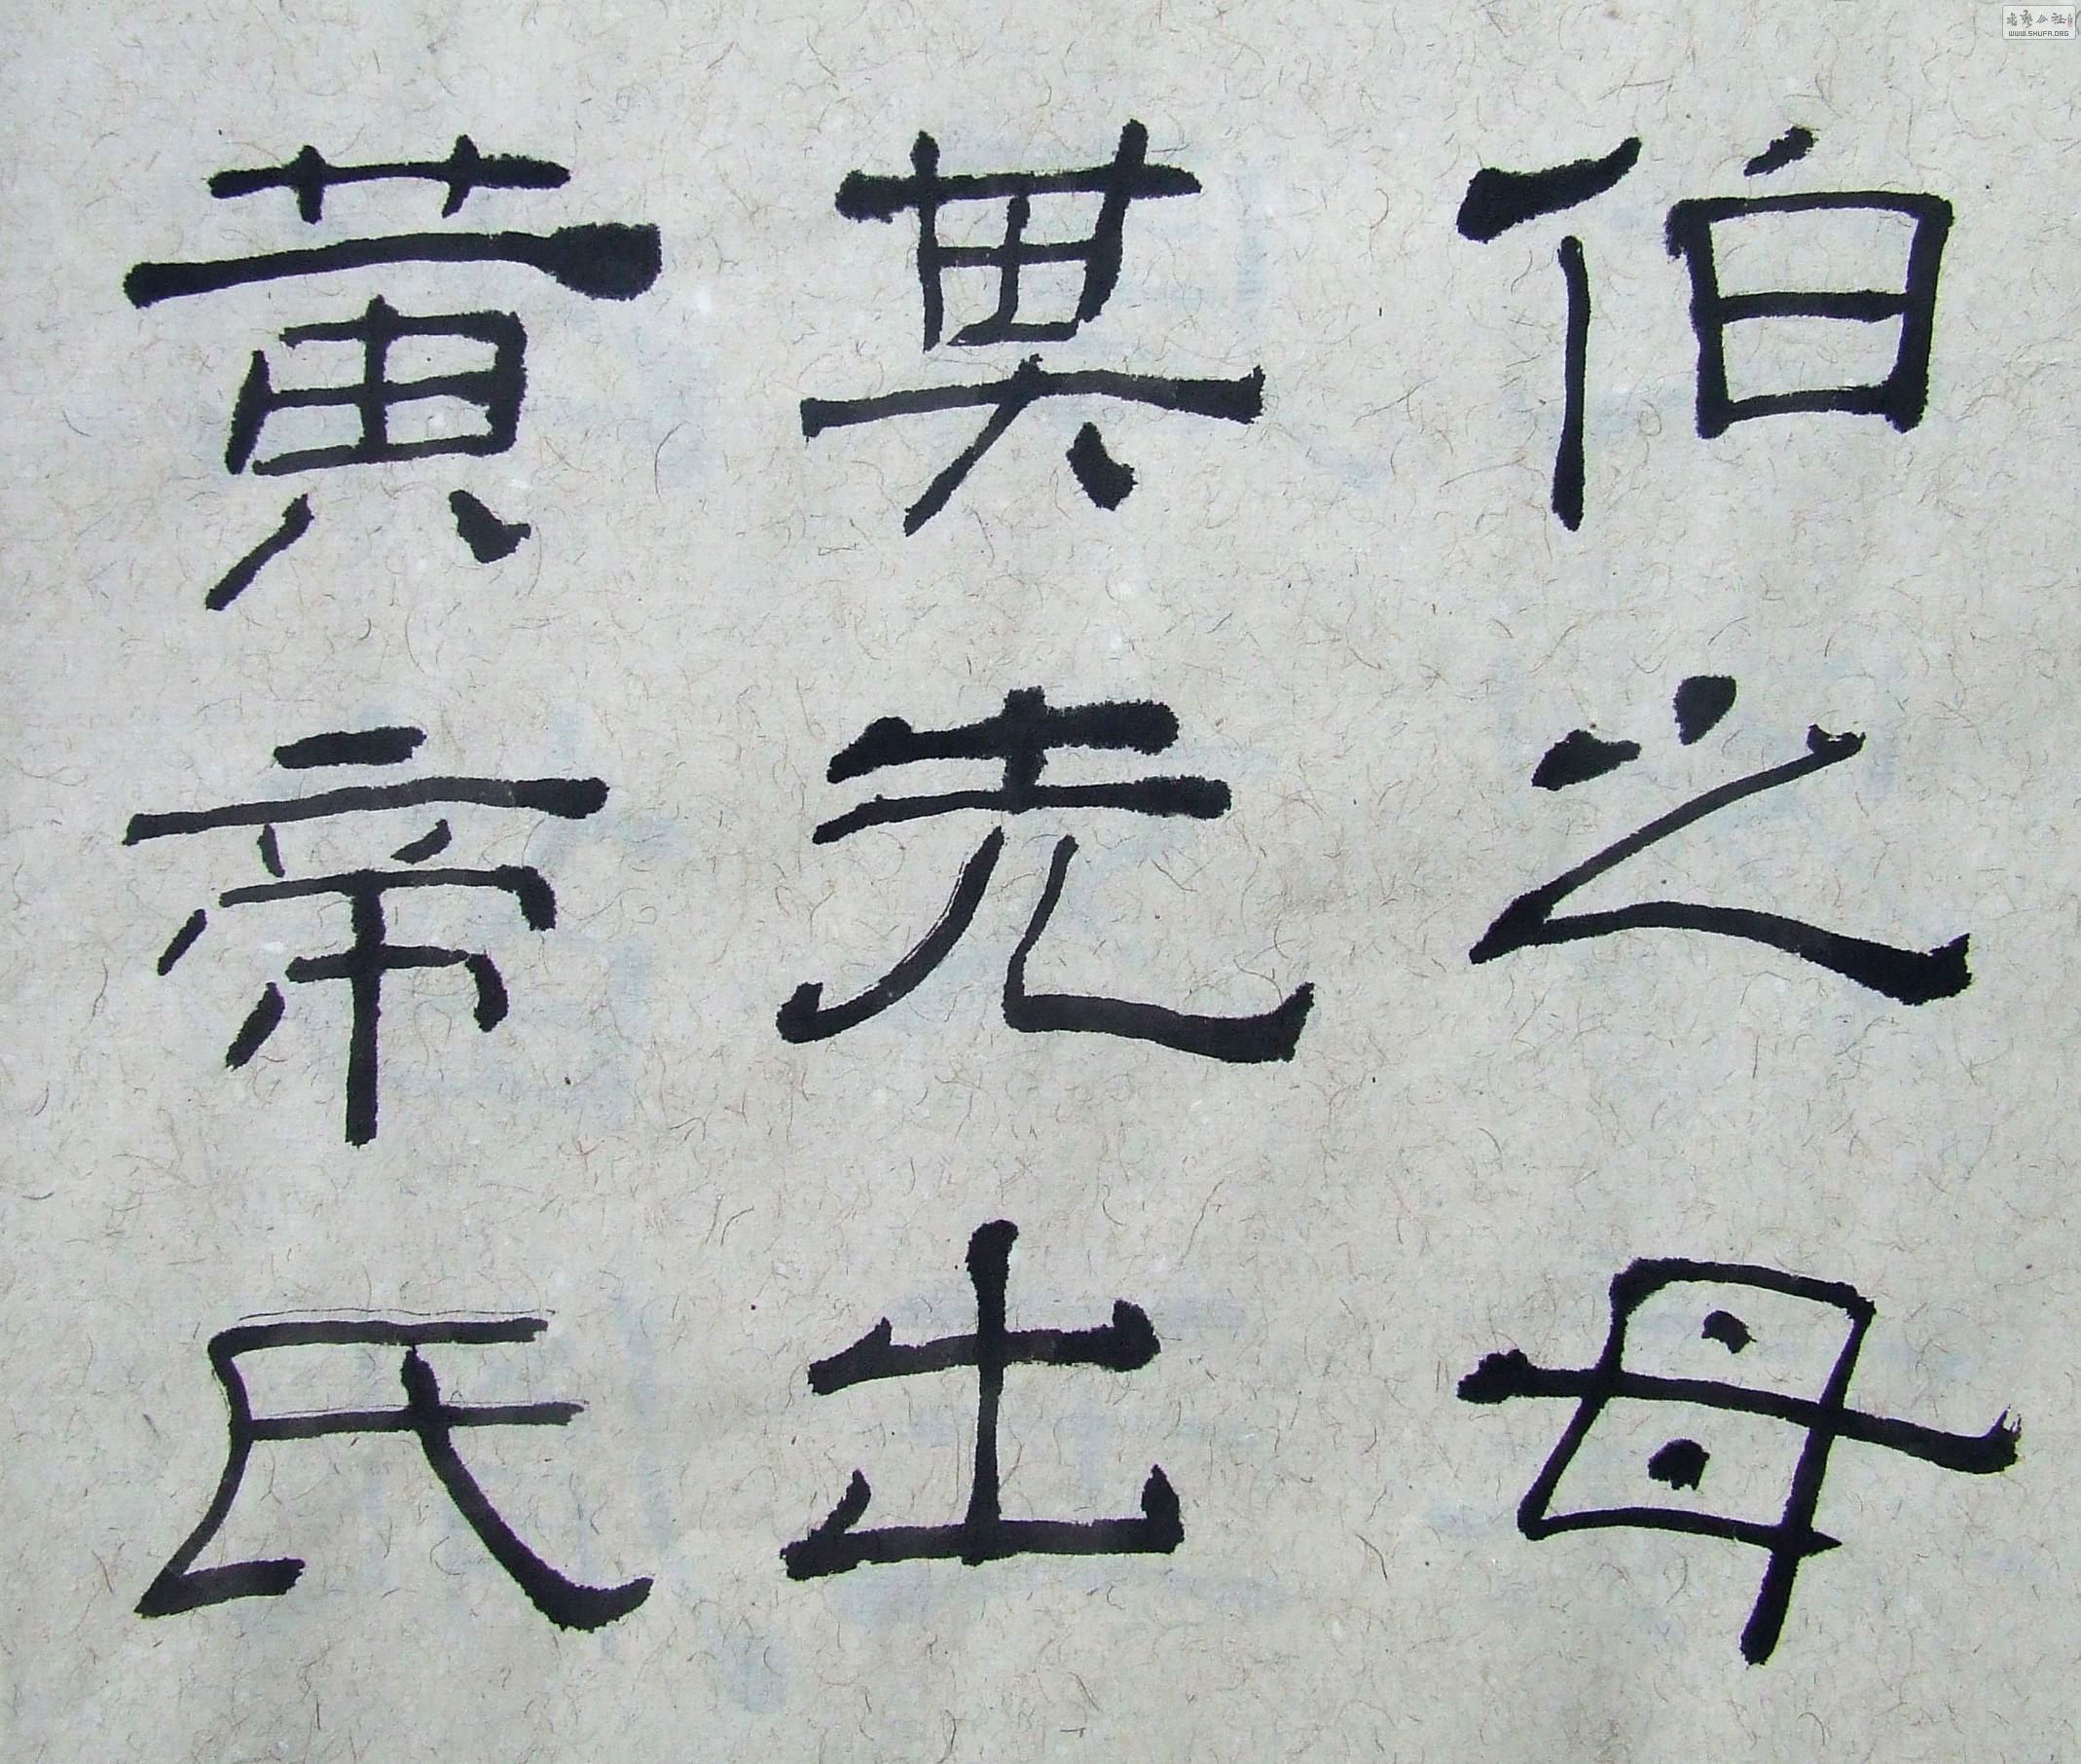 伯之母
其先出
黄帝氏
WWW.SHUFA.ORG